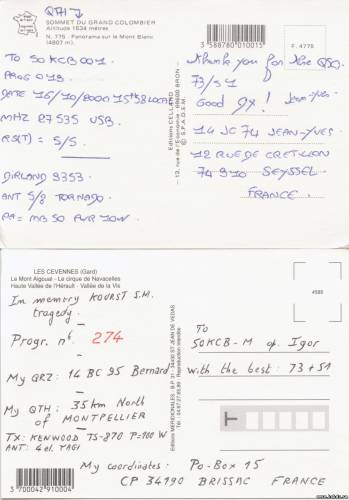 QTH
SOMMET DU GRAND COLOMBIER
Altitude 1534 mètres
N. 775 - Panorama sur le Mont Blanc
(4807 m.)
TO 50KCB001
PROG 019
DATE 16/10/2000 15H58 LOCAL
MHZ 27535 USB
RS(T) = 5/5
DIRLAND 9353
ANT 5/8 TORNADO
PA = MB 50 PWR 10W
Editions CELLARD - BRON -
- 12, rue de l'Economie - 69500 BRON -
© S.P.A.D.E.M.
3 588780 010015
F. 4778
Thank you for the QSO.
73/51
Good DX! Jean-Yves
14 JC 74 JEAN-YVES
12 RUE DE CRETILLON
74 910 SEYSSEL
FRANCE.
LES CEVENNES (Gard)
Le Mont Aigoual - Le cirque de Navacelles
Haute Vallée de l'Hérault - Vallée de la Vis
In memory KOURST S.M.
tragedy.
Progr. n°. 274
My QRZ: 14 BC 95 Bernard
My QTH: 35 km North
of MONTPELLIER
TX: KENWOOD TS-870 P=100 W
ANT: 4 el. YAGI
My coordinates: Po-Box 15
CP 34190 BRISSAC FRANCE
3 700042 910004
Editions MERIDIONALES - B.P. 31 - ST JEAN DE VEDAS
Reproduction interdite
4585
TO
50KCB-M op. Igor
with the best: 73 + 51